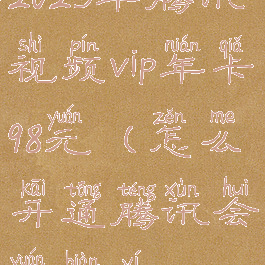 2025年腾讯
shì pín nián qiǎ
视频vip年卡
yuán zěn me
98元(怎么
kāi tōng téng xùn huì
开通腾讯会
yuán biàn yí